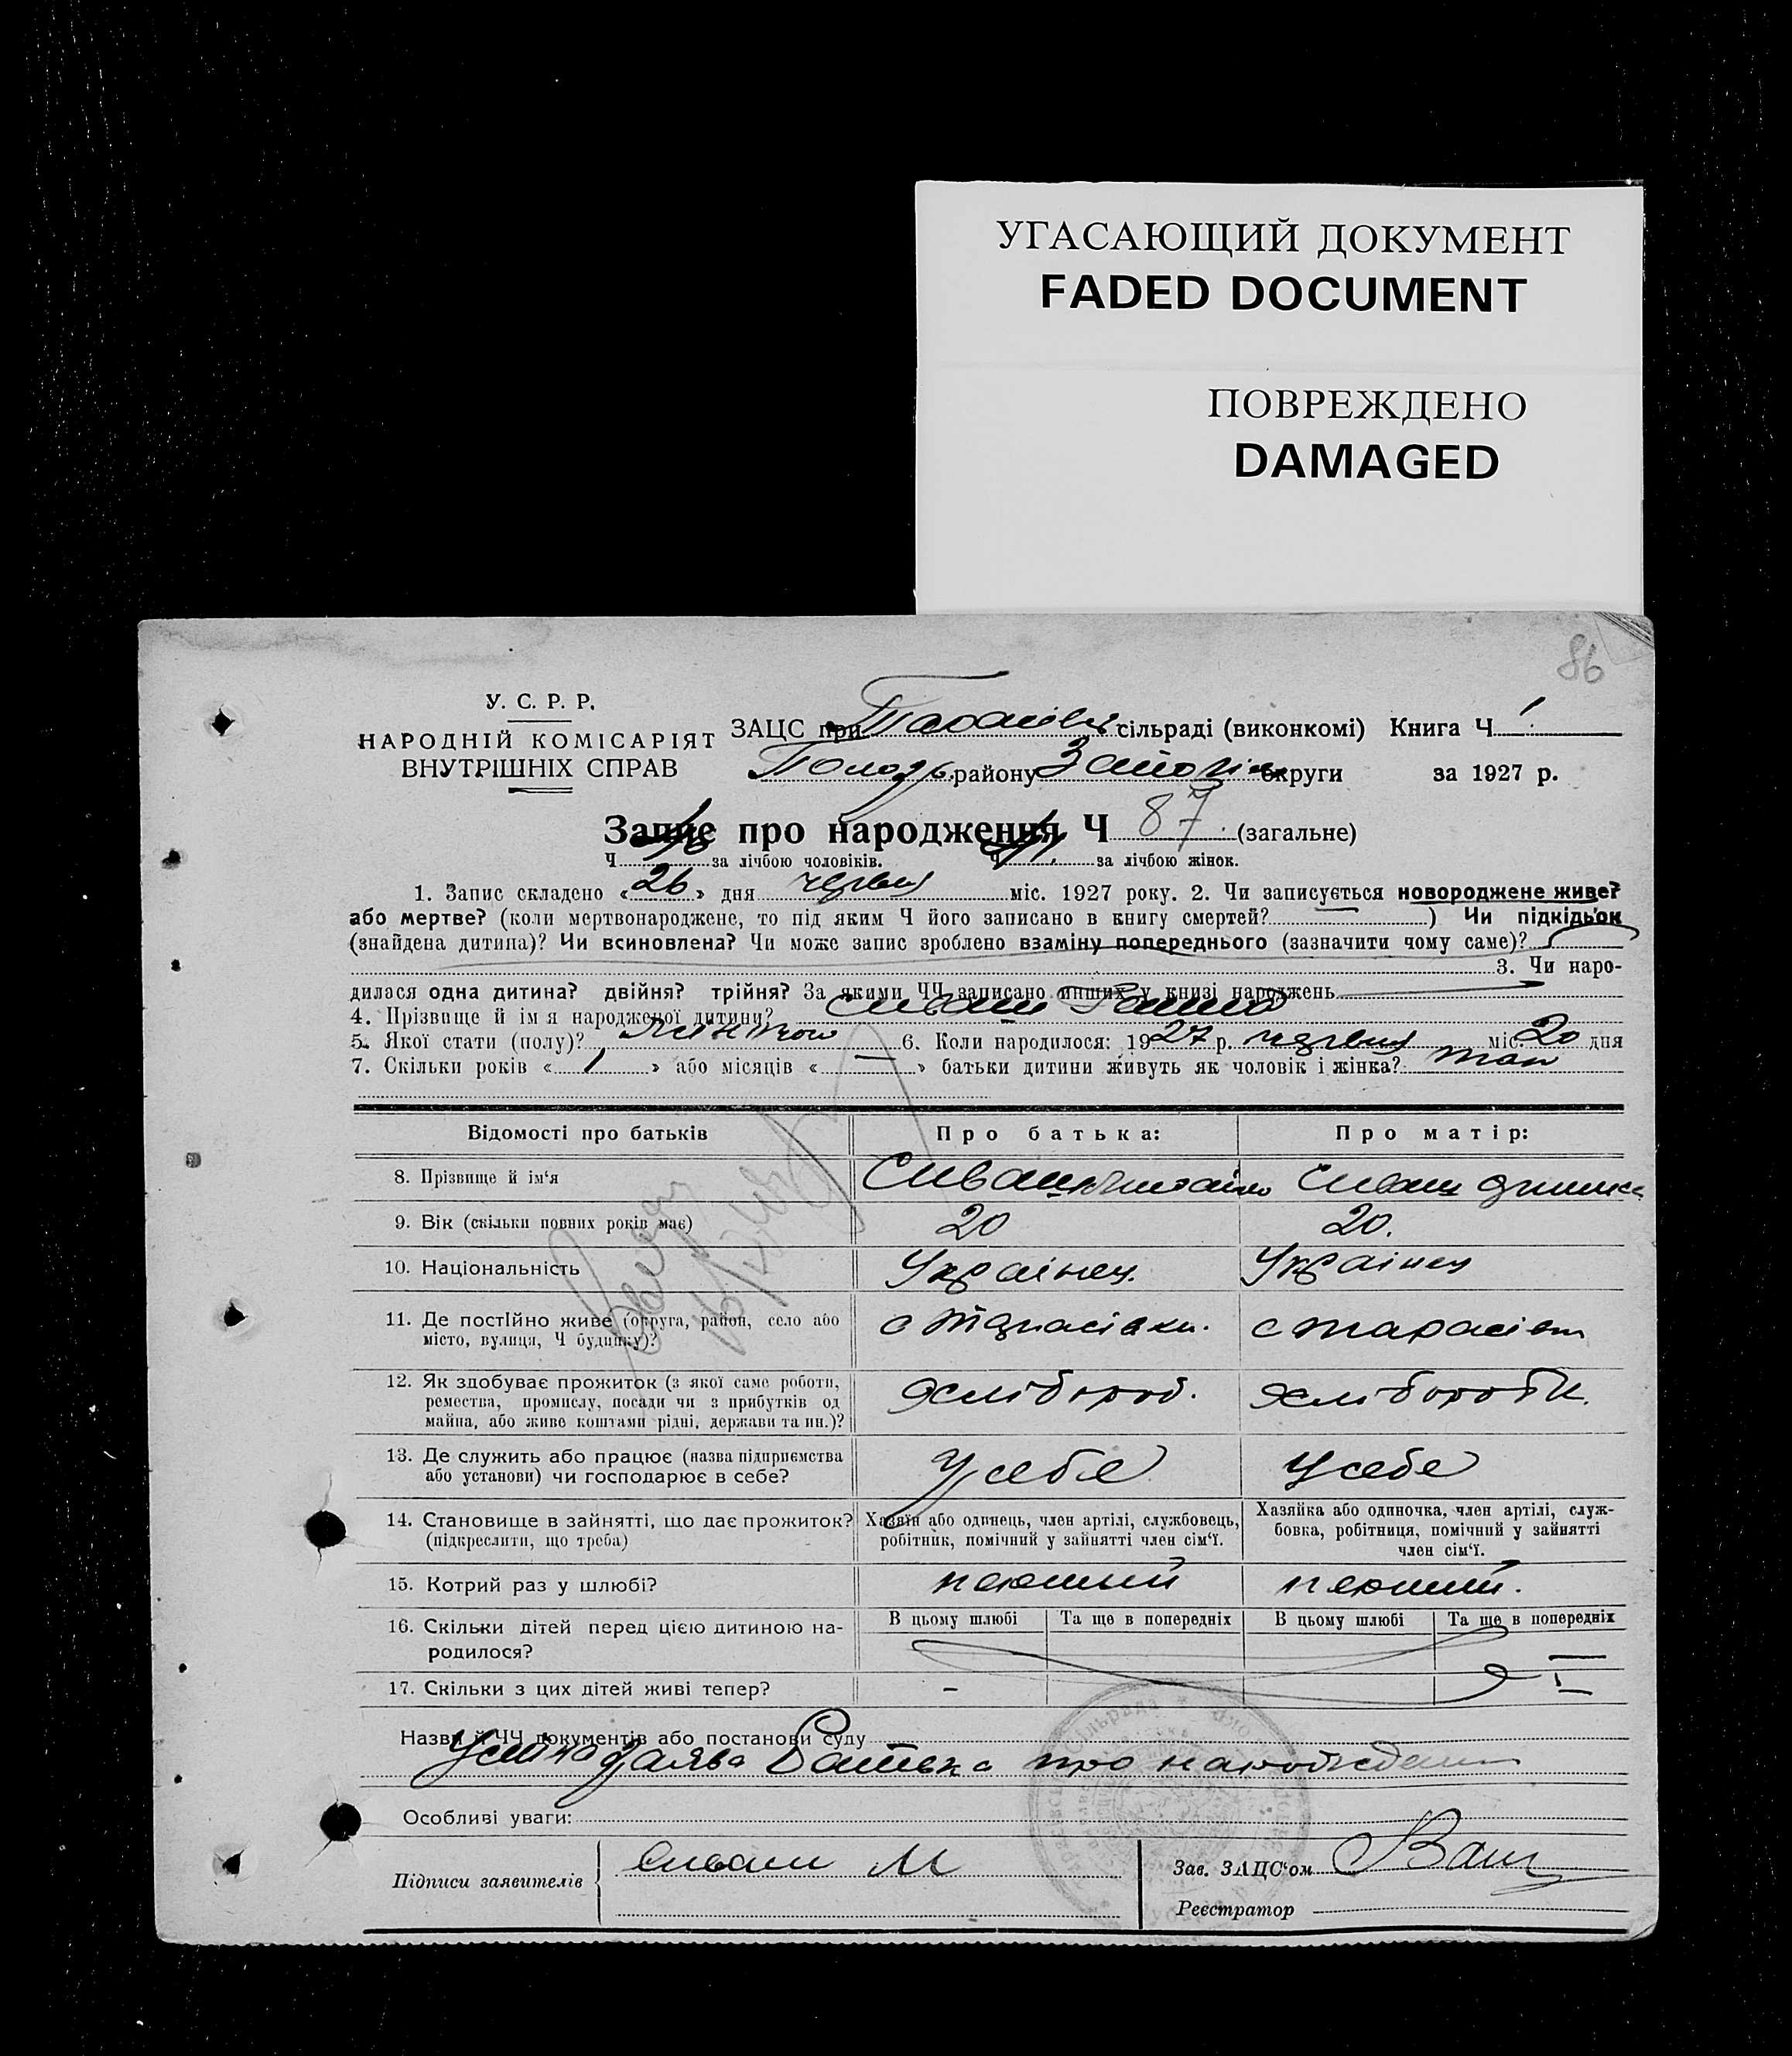 УГАСАЮЩИЙ ДОКУМЕНТ
FADED DOCUMENT
ПОВРЕЖДЕНО
DAMAGED
86
У. С. Р. Р.
НАРОДНІЙ КОМІСАРІЯТ
ВНУТРІШНІХ СПРАВ
ЗАЦС при сільраді (виконкомі) Книга Ч 1
району округи за 1927 р.
Запис про народження Ч 87 (загальне)
Ч за лічбою чоловіків. Ч за лічбою жінок.
1. Запис складено «26» дня червня міс. 1927 року. 2. Чи записується новороджене живе?
або мертве? (коли мертвонароджене, то під яким Ч його записано в книгу смертей? ) Чи підкідьок
(знайдена дитина)? Чи всиновлена? Чи може запис зроблено взаміну попереднього (зазначити чому саме)?
3. Чи наро-
дилася одна дитина? двійня? трійня? За якими ЧЧ записано инших у книзі народжень
4. Прізвище й ім я народженої дитини? Сиваш
5. Якої стати (полу)? 6. Коли народилося: 1927 р. червня міс. 20 дня
7. Скільки років « 1 » або місяців « — » батьки дитини живуть як чоловік і жінка? так
Відомості про батьків Про батька: Про матір:
8. Прізвище й ім‘я Сиваш Сиваш
9. Вік (скільки повних років має) 20 20.
10. Національність Українец. Українец
11. Де постійно живе (округа, район, село або с Тарасівки. с Тарасівки
місто, вулиця, Ч будинку)?
12. Як здобуває прожиток (з якої саме роботи, хлібороб. хліборобка.
ремества, промислу, посади чи з прибутків од
майна, або живе коштами рідні, держави та ин.)?
13. Де служить або працює (назва підприємства у себе у себе
або установи) чи господарює в себе?
14. Становище в зайнятті, що дає прожиток? Хазяїн або одинець, член артілі, службовець, Хазяйка або одиночка, член артілі, служ-
(підкреслити, що треба) робітник, помічний у зайнятті член сім‘ї. бовка, робітниця, помічний у зайнятті
член сім‘ї.
15. Котрий раз у шлюбі? перший перший.
16. Скільки дітей перед цією дитиною на- В цьому шлюбі Та ще в попередніх В цьому шлюбі Та ще в попередніх
родилося?
17. Скільки з цих дітей живі тепер? –
Назви й ЧЧ документів або постанови суду
Усна заява батька про народження
Особливі уваги:
Підписи заявителів Сиваш М Зав. ЗАЦС‘ом
Реєстратор